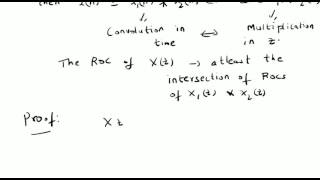 then
Convolution in ⇔ Multiplication
time in z.
The ROC of X(z) → atleast the
intersection of ROCs
of X₁(z) & X₂(z)
Proof: X z